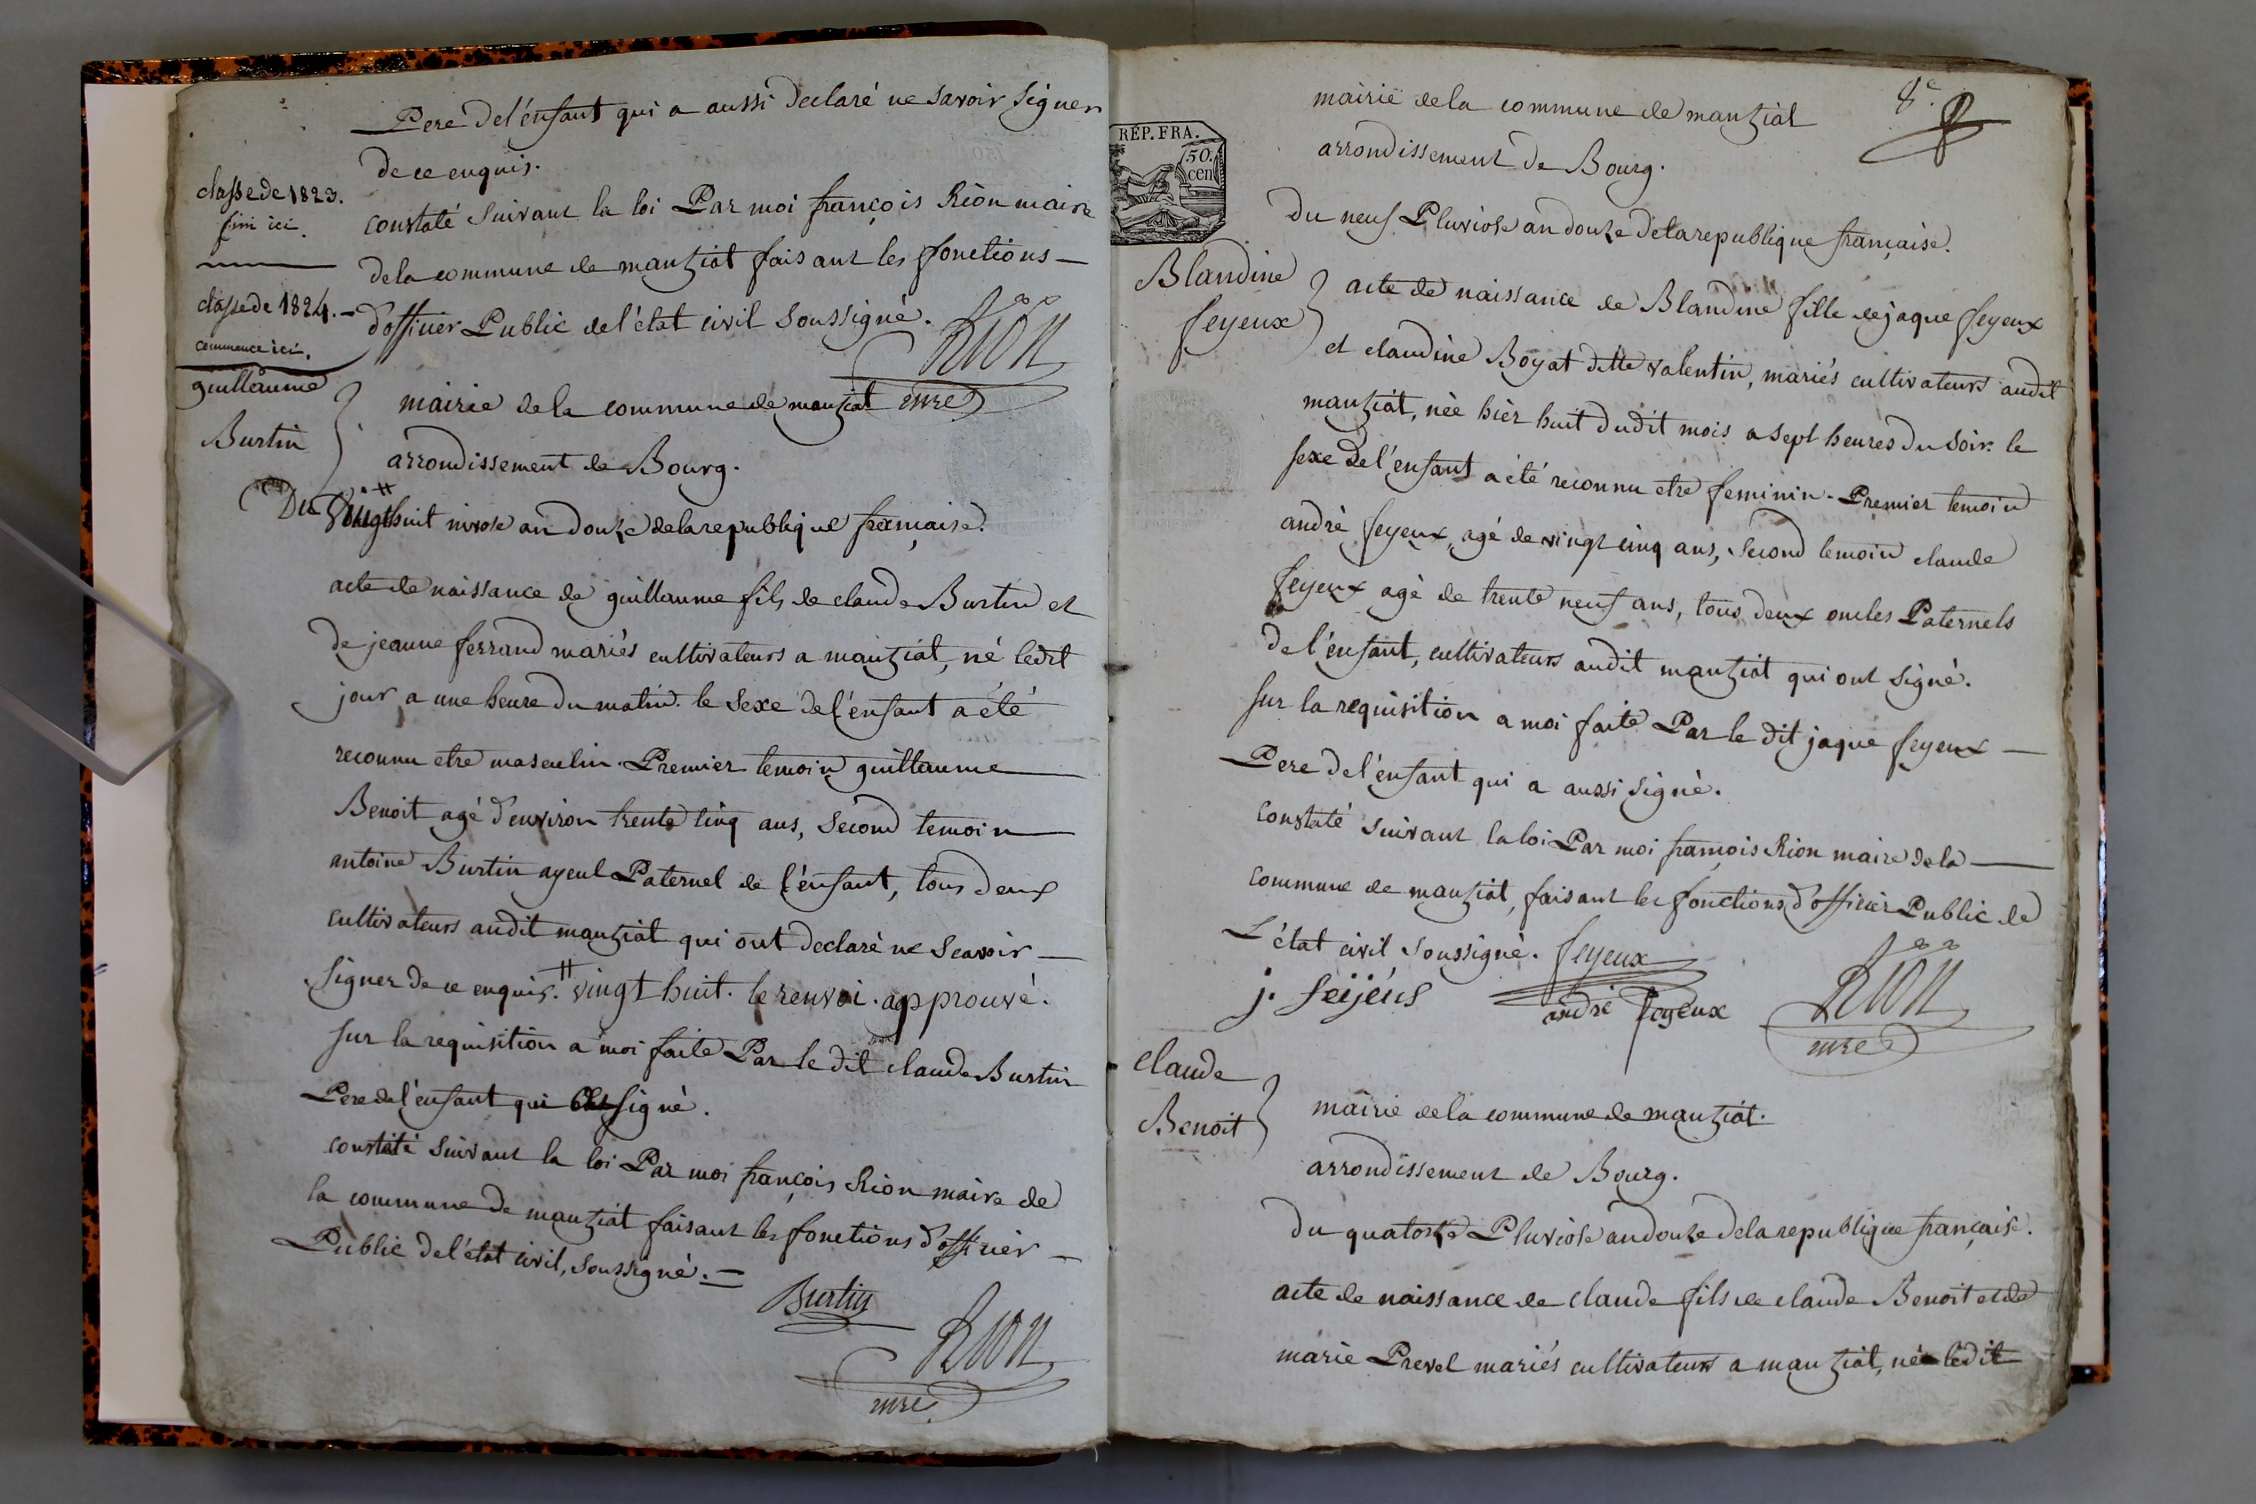 Pere de l'énfant qui a aussi declaré ne savoir signer
de ce enquis.
classe de 1823.
fini ici.
constaté suivant la loi Par moi françois Rion maire
de la commune de mantziat faisant les fonctions
classe de 1824.
commence ici.
d'officier Public de l'état civil soussigné.
Rion
mre
guillaume
Burtin
mairie de la commune de mantziat
arrondissement de Bourg.
Du huit nivose an douze de la republique française.
acte de naissance de guillaume fils de claude Burtin et
de jeanne ferrand mariés cultivateurs a mantziat, né ledit
jour a une heure du matin. le sexe de l'énfant a été
reconnu etre masculin. Premier temoin guillaume
Benoit agé d'environ trente cinq ans, second temoin
antoine Burtin ayeul Paternel de l'énfant, tous deux
cultivateurs audit mantziat qui ont declaré ne scavoir
signer de ce enquis. # vingt huit. le renvoi. approuvé.
sur la requisition a moi faite Par le dit claude Burtin
Pere de l'énfant qui signé.
constaté suivant la loi Par moi françois Rion maire de
la commune de mantziat faisant les fonctions d'officier
Public de l'état civil, soussigné.
Burtin
Rion
mre
8e
mairie de la commune de mantziat
arrondissement de Bourg.
RÉP. FRA.
50.
cen
du neuf Pluviose an douze de la republique française.
Blandine
feyeux
acte de naissance de Blandine fille de jaque feyeux
et claudine Boyat ditte valentin, mariés cultivateurs audit
mantziat, née hièr huit dudit mois a sept heures du soir. le
sexe de l'énfant a été reconnu etre feminin. Premier temoin
andré feyeux, agé de vingt cinq ans, second temoin claude
feyeux agé de trente neuf ans, tous deux oncles Paternels
de l'énfant, cultivateurs audit mantziat qui ont signé.
sur la requisition a moi faite Par le dit jaque feyeux
Pere de l'énfant qui a aussi signé.
constaté suivant la loi Par moi françois Rion maire de la
commune de mantziat, faisant les fonctions d'officier Public de
l'état civil soussigné. feyeux
j. feijéus
andré feyeux
Rion
mre
claude
Benoit
mairie de la commune de mantziat.
arrondissement de Bourg.
du quatorze Pluviose an douze de la republique française.
acte de naissance de claude fils de claude Benoit et de
marie Prevel mariés cultivateurs a mantziat, né ledit